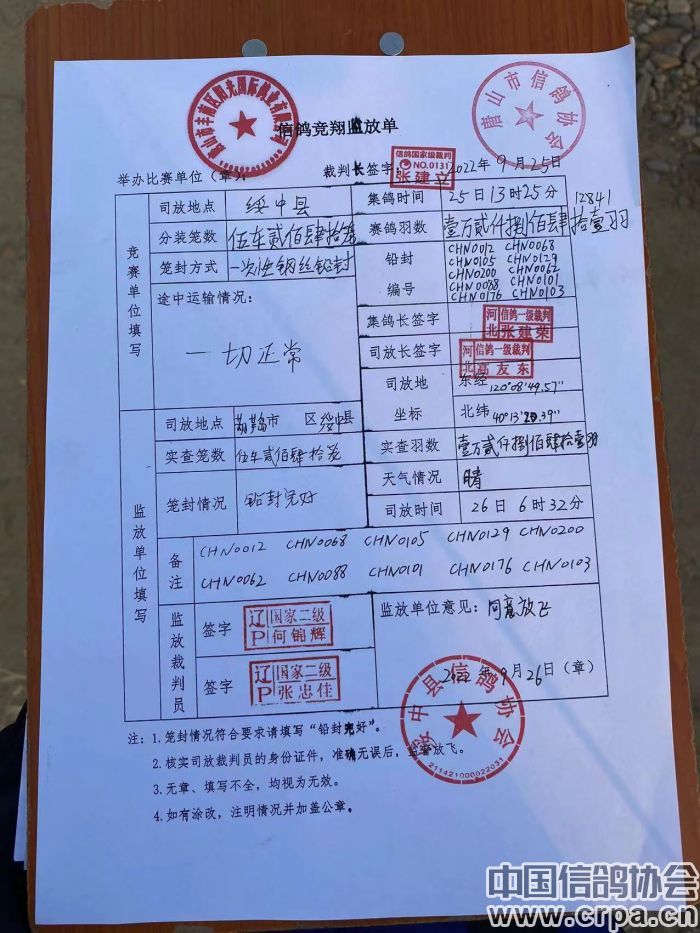 信鸽竞翔监放单
唐山市丰南区阳光国际鸽业有限公司
唐山市信鸽协会
举办比赛单位（章）：
裁判长签字：
信鸽国家级裁判
NO.0131
张建立
2022年9月25日
竞赛单位填写
司放地点
绥中县
集鸽时间
25日13时25分
12841
分装笼数
伍车贰佰肆拾笼
赛鸽羽数
壹万贰仟捌佰肆拾壹羽
笼封方式
一次性钢丝铅封
铅封编号
CHN0012 CHN0068
CHN0105 CHN0129
CHN0200 CHN0062
CHN0088 CHN0101
CHN0176 CHN0103
途中运输情况：
一切正常
集鸽长签字
河北
信鸽一级裁判
张建荣
司放长签字
河北
信鸽一级裁判
高友东
司放地坐标
东经
120°08'49.57"
北纬
40°13'20.39"
监放单位填写
司放地点
葫芦岛市 区绥中县
实查笼数
伍车贰佰肆拾笼
实查羽数
壹万贰仟捌佰肆拾壹羽
笼封情况
铅封完好
天气情况
晴
司放时间
26日6时32分
备注
CHN0012 CHN0068 CHN0105 CHN0129 CHN0200
CHN0062 CHN0088 CHN0101 CHN0176 CHN0103
监放裁判员
签字
辽P
国家二级
何锦辉
签字
辽P
国家二级
张忠佳
监放单位意见：同意放飞
2022年9月26日（章）
绥中县信鸽协会
211421000022031
注：1.笼封情况符合要求请填写“铅封完好”。
2.核实司放裁判员的身份证件，准确无误后，监督放飞。
3.无章、填写不全，均视为无效。
4.如有涂改，注明情况并加盖公章。
中国信鸽协会
www.crpa.cn